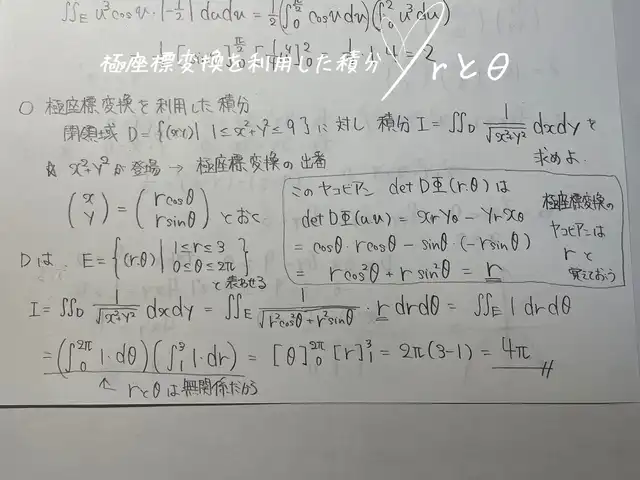 ∬_E u³cosv·|-1/2| dudv = 1/2(∫_0^{π/2} cosv dv)(∫_0^2 u³du)
極座標変換を利用した積分 rとθ
○ 極座標変換を利用した積分
閉領域 D={(x,y)| 1≤x²+y²≤9}に対し 積分 I=∬_D 1/√(x²+y²) dxdyを
求めよ.
☆ x²+y²が登場 → 極座標変換の出番
(x y) = (rcosθ rsinθ) とおく.
Dは, E={(r,θ)| 1≤r≤3 0≤θ≤2π}
と表わせる
このヤコビアン det DΦ(r,θ)は
det DΦ(u,v) = x_r y_θ - y_r x_θ
= cosθ·rcosθ - sinθ·(-rsinθ)
= rcos²θ + rsin²θ = r
極座標変換の
ヤコビアンは
rと
覚えておこう
I = ∬_D 1/√(x²+y²) dxdy = ∬_E 1/√(r²cos²θ+r²sin²θ) · r drdθ = ∬_E 1 drdθ
= (∫_0^{2π} 1·dθ)(∫_1^3 1·dr) = [θ]_0^{2π} [r]_1^3 = 2π(3-1) = 4π
↑ rとθは無関係だから